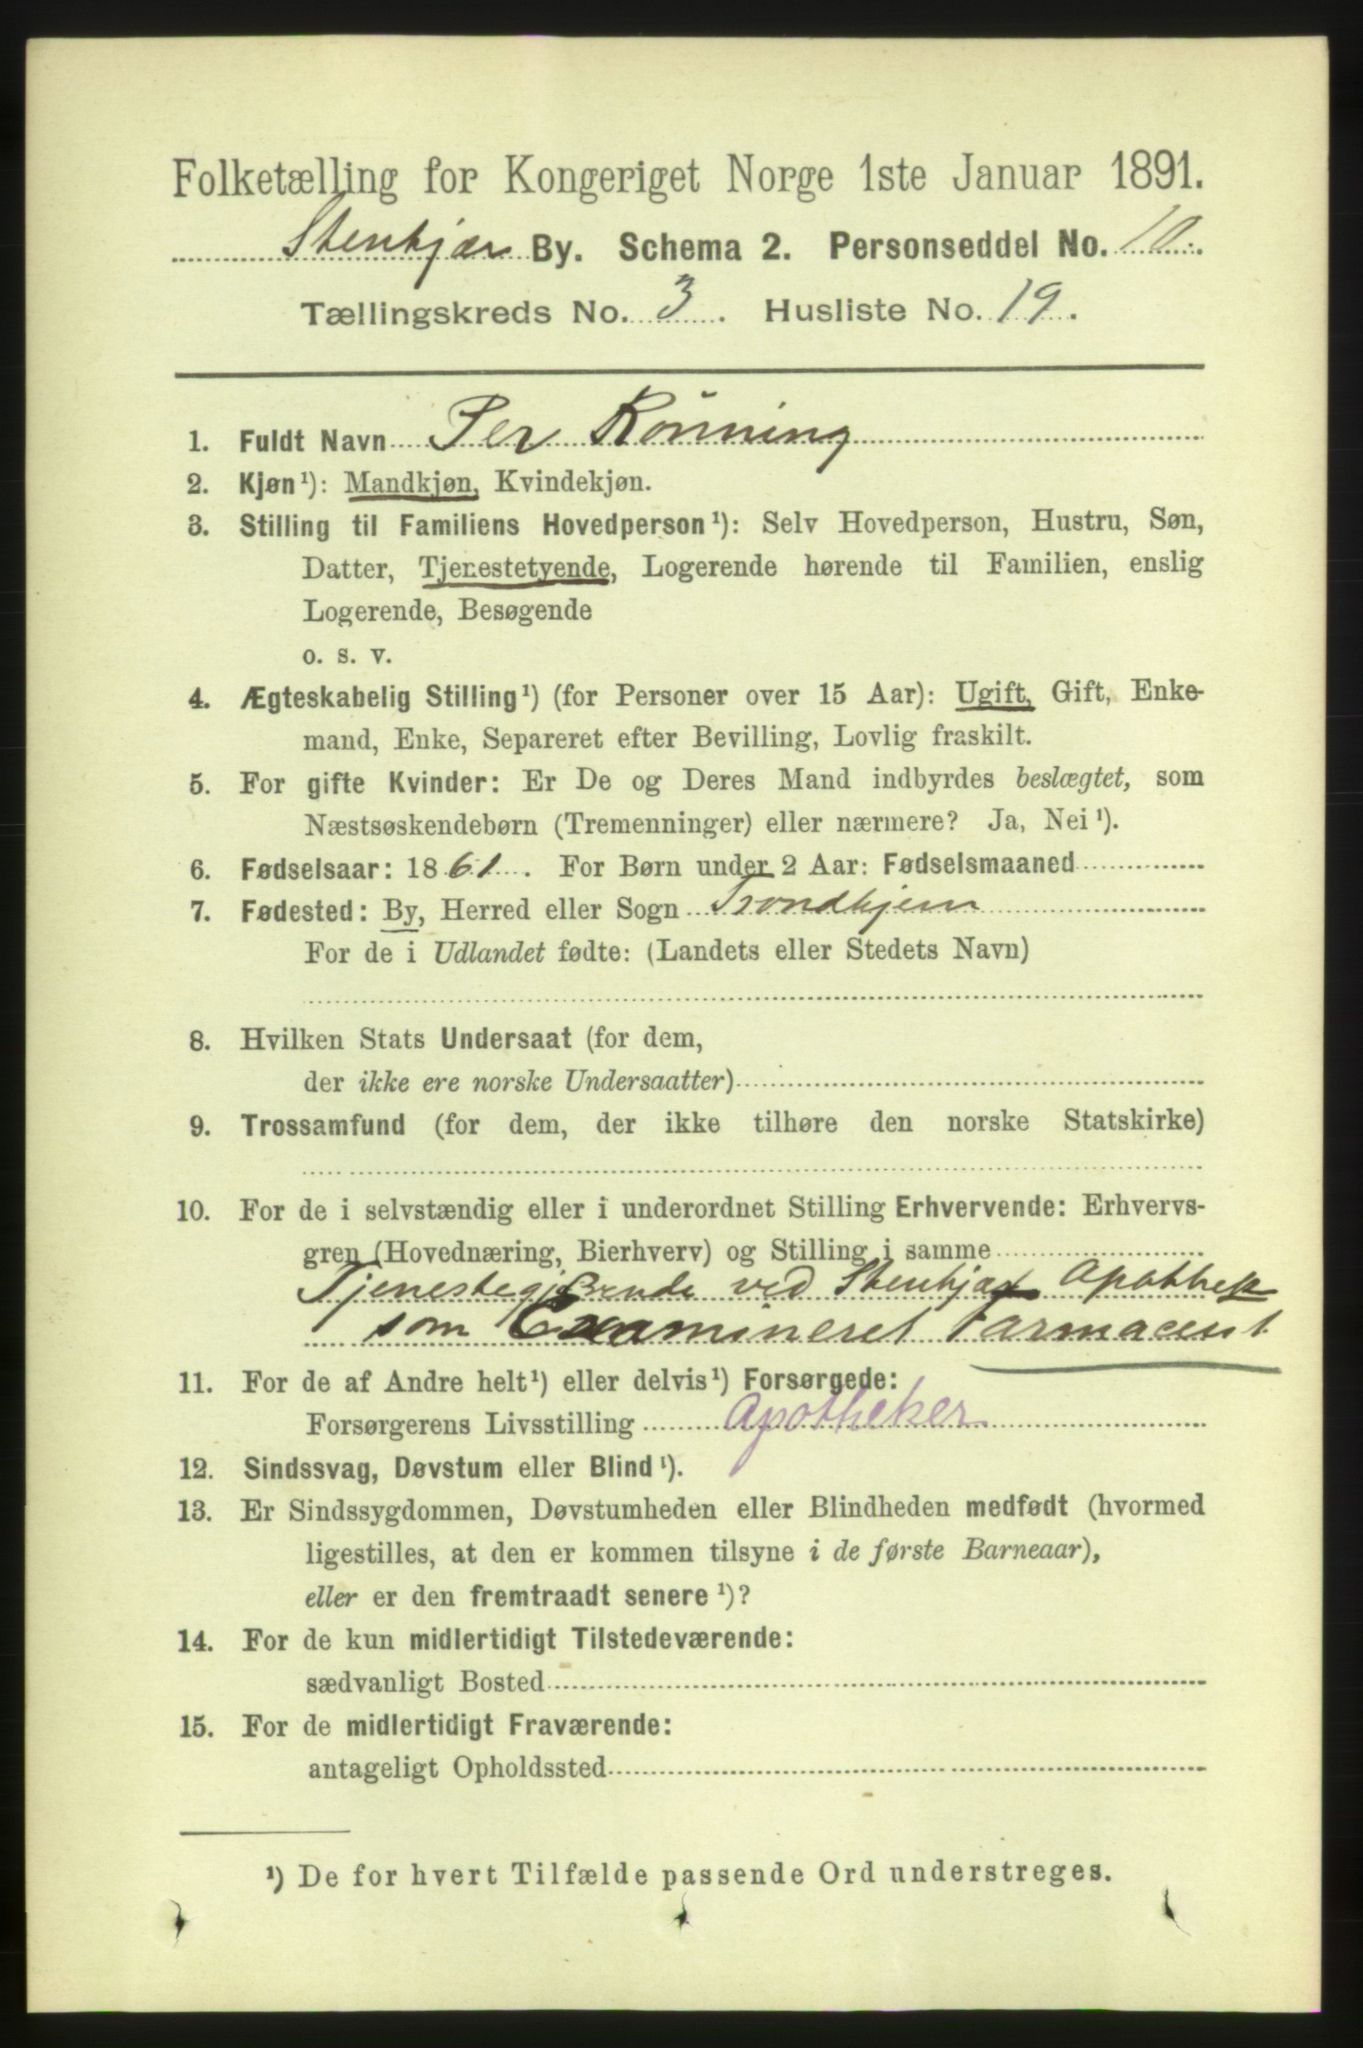 Folketælling for Kongeriget Norge 1ste Januar 1891.
Stenkjær By. Schema 2. Personseddel No. 10.
Tællingskreds No. 3. Husliste No. 19.
1. Fuldt Navn Per Rönning
2. Kjøn¹): Mandkjøn, Kvindekjøn.
3. Stilling til Familiens Hovedperson¹): Selv Hovedperson, Hustru, Søn,
Datter, Tjenestetyende, Logerende hørende til Familien, enslig
Logerende, Besøgende
o. s. v.
4. Ægteskabelig Stilling¹) (for Personer over 15 Aar): Ugift, Gift, Enke-
mand, Enke, Separeret efter Bevilling, Lovlig fraskilt.
5. For gifte Kvinder: Er De og Deres Mand indbyrdes beslægtet, som
Næstsøskendebørn (Tremenninger) eller nærmere? Ja, Nei¹).
6. Fødselsaar: 1861. For Børn under 2 Aar: Fødselsmaaned
7. Fødested: By, Herred eller Sogn Trondhjem
For de i Udlandet fødte: (Landets eller Stedets Navn)
8. Hvilken Stats Undersaat (for dem,
der ikke ere norske Undersaatter)
9. Trossamfund (for dem, der ikke tilhøre den norske Statskirke)
10. For de i selvstændig eller i underordnet Stilling Erhvervende: Erhvervs-
gren (Hovednæring, Bierhverv) og Stilling i samme
Tjenestegjörende ved Stenkjær Apothek
som Examineret Farmaceut
11. For de af Andre helt¹) eller delvis¹) Forsørgede:
Forsørgerens Livsstilling Apotheker
12. Sindssvag, Døvstum eller Blind¹).
13. Er Sindssygdommen, Døvstumheden eller Blindheden medfødt (hvormed
ligestilles, at den er kommen tilsyne i de første Barneaar),
eller er den fremtraadt senere¹)?
14. For de kun midlertidigt Tilstedeværende:
sædvanligt Bosted
15. For de midlertidigt Fraværende:
antageligt Opholdssted
¹) De for hvert Tilfælde passende Ord understreges.